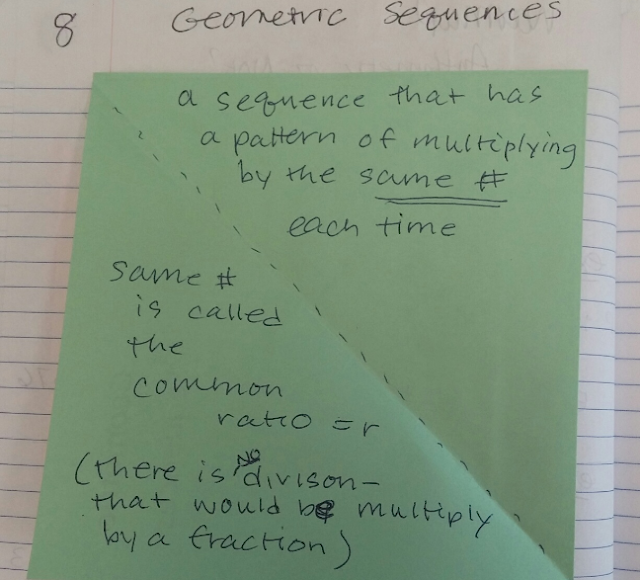 8 Geometric Sequences
a sequence that has
a pattern of multiplying
by the same #
each time
same #
is called
the
common
ratio = r
(there is NO divison-
that would be multiply
by a fraction)